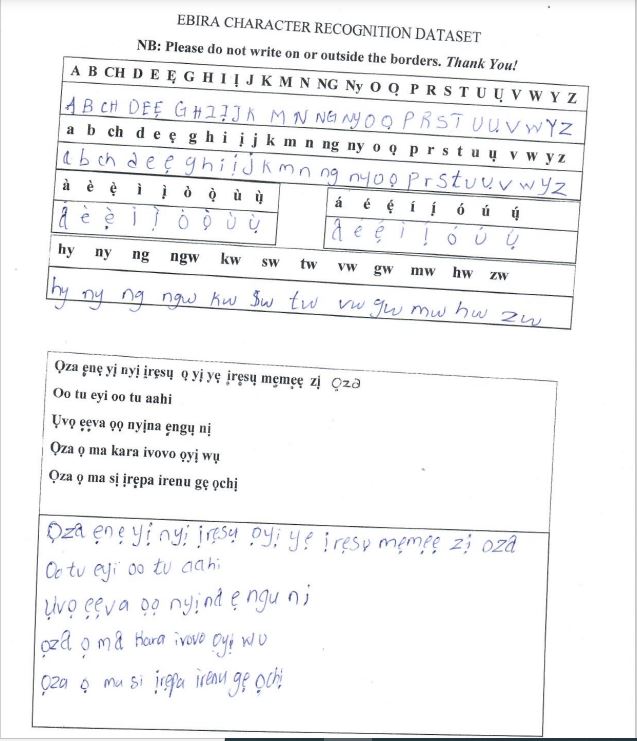 EBIRA CHARACTER RECOGNITION DATASET
NB: Please do not write on or outside the borders. Thank You!
A B CH D E Ẹ G H I Ị J K M N NG Ny O Ọ P R S T U Ụ V W Y Z
A B CH D E Ẹ G H I Ị J K M N NG NY O Ọ P R S T U U V W Y Z
a b ch d e ẹ g h i ị j k m n ng ny o ọ p r s t u ụ v w y z
a b ch d e ẹ g h i ị j k m n ng ny o ọ p r s t u ụ v w y z
à è ẹ̀ ì ị̀ ò ọ̀ ù ụ̀
à è ẹ̀ ì ị̀ ò ọ̀ ù ụ̀
á é ẹ́ í ị́ ó ú ụ́
á é ẹ́ í ị́ ó ú ụ́
hy ny ng ngw kw sw tw vw gw mw hw zw
hy ny ng ngw kw sw tw vw gw mw hw zw
Ọza ẹnẹ yị nyị ịrẹsụ ọ yị yẹ ịrẹsụ mẹmẹẹ zị Ọza
Oo tu eyi oo tu aahi
Ụvọ ẹẹva ọọ nyịna ẹngụ nị
Ọza ọ ma kara ivovo ọyị wụ
Ọza ọ ma sị ịrẹpa irenu gẹ ọchị
Ọza ẹnẹ yị nyị ịrẹsụ ọyị yẹ ịrẹsụ mẹmẹẹ zị oza
Oo tu eyi oo tu aahi
Ụvọ ẹẹva ọọ nyịna ẹ ngu nị
ọza ọ ma Kara ivovo ọyị wu
Ọza ọ ma si ịrẹpa irenu gẹ ọchị